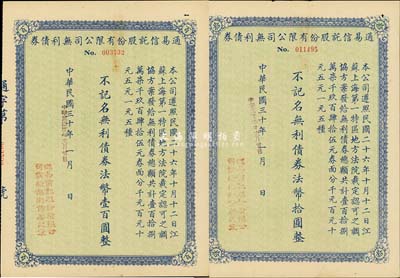 券債利無司公限有份股託信易通
No. 003732
本公司遵照民國二十六年十月十二日江
蘇上海第一特區地方法院裁定認可之調
協方案發給無利債券總額共計壹百拾捌
萬柒千玖百肆拾伍元券面分千元百元十
元五元一元五種
不記名無利債券法幣壹百圓整
中華民國三十年 月 日
券債利無司公限有份股託信易通
No. 011495
本公司遵照民國二十六年十月十二日江
蘇上海第一特區地方法院裁定認可之調
協方案發給無利債券總額共計壹百拾捌
萬柒千玖百肆拾伍元券面分千元百元十
元五元一元五種
不記名無利債券法幣拾圓整
中華民國三十年 月 日